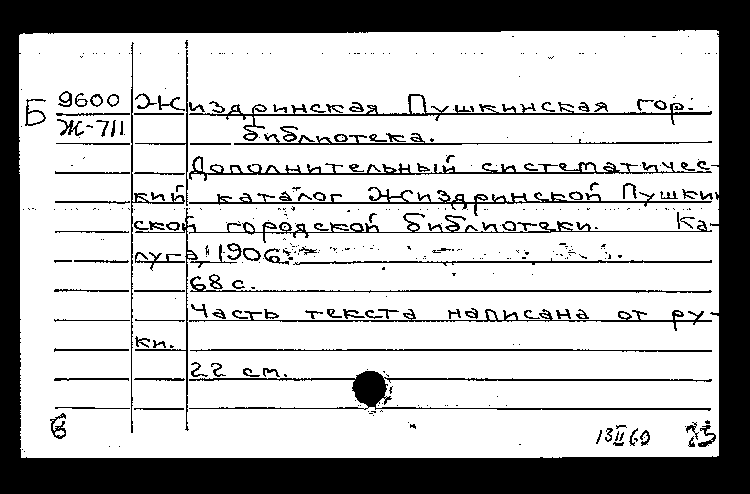 Б 9600 Жиздринская Пушкинская гор.
Ж-711 библиотека.
Дополнительный систематичес-
кий каталог Жиздринской Пушкин
ской городской библиотеки. Ка-
луга, 1906.
68 с.
Часть текста написана от ру-
ки.
22 см.
13 II 60